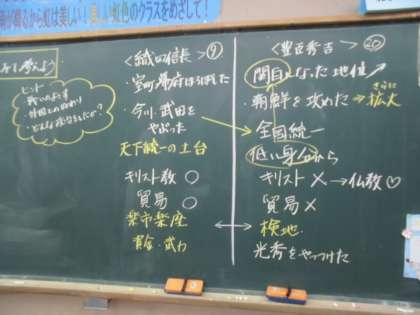 雨が降るから虹は美しい!美しい虹色のクラスをめざして!
考えよう
ヒント
・戦い方のようす
・外国との関わり
・どんな夢になえたか?
<織田信長> ⑨
・室町幕府ほろぼした
・今川・武田を
やぶった
天下統一の土台
キリスト教 ○
貿易 ○
楽市楽座
資金・武力
<豊臣秀吉> ⑳
関白になった 地位↗
・朝鮮を攻めた→さらに拡大
全国統一
低い身分から
キリスト×→仏教♡
貿易×
検地
光秀をやっつけた